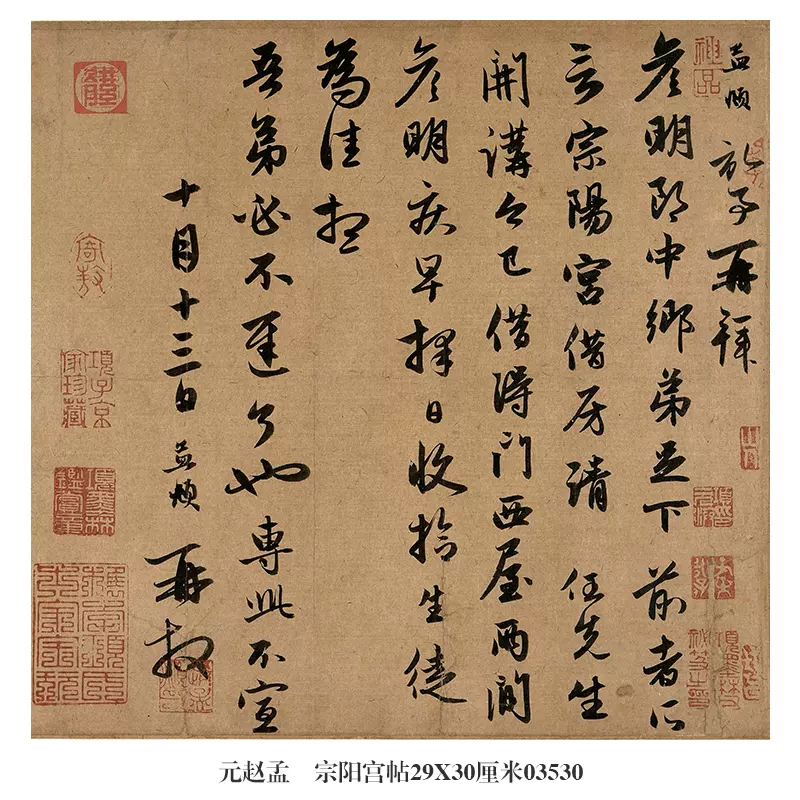 神品
孟頫 再拜
彥明郎中鄉弟足下 前者所
言宗陽宮借房請 任先生
開講今已借得門西屋兩間
彥明疾早擇日收拾生徒
為佳想
吾弟必不遲了也專此不宣
十月十三日孟頫再拜
項子京家珍藏
項墨林鑑賞章
元赵孟 宗阳宫帖29X30厘米03530